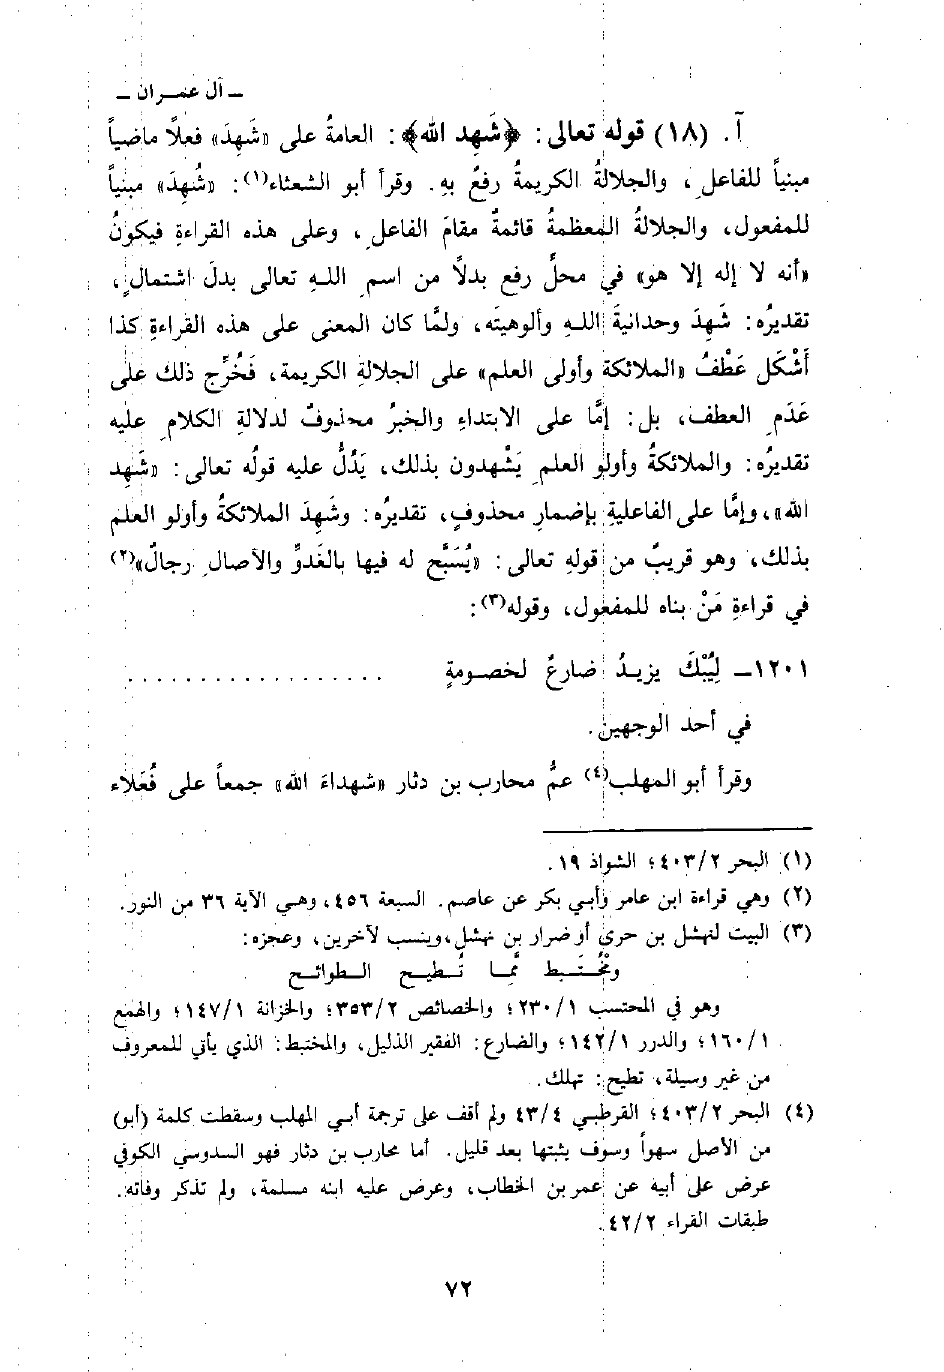 ـ آل عمـران ـ
آ. (١٨) قوله تعالى: ﴿شَهِد الله﴾: العامةُ على «شَهِدَ» فعلاً ماضياً
مبنياً للفاعلِ، والجلالةُ الكريمةُ رفعٌ بهِ. وقرأ أبو الشعثاء(١): «شُهِدَ» مبنياً
للمفعول، والجلالةُ المعظمةُ قائمةٌ مقامَ الفاعلِ، وعلى هذه القراءةِ فيكونُ
«أنه لا إله إلا هو» في محلِّ رفع بدلاً من اسمِ اللهِ تعالى بدلَ اشتمالٍ،
تقديرُه: شُهِدَ وحدانيةُ اللهِ وألوهيتُه، ولمَّا كان المعنى على هذه القراءةِ كذا
أَشْكَل عَطْفُ «الملائكة وأولى العلم» على الجلالةِ الكريمة، فَخُرِّج ذلك على
عَدَمِ العطف، بل: إمَّا على الابتداءِ والخبرُ محذوفٌ لدلالةِ الكلامِ عليه
تقديرُه: والملائكةُ وأولو العلمِ يَشْهدون بذلك، يَدُلُّ عليه قولُه تعالى: «شَهِد
الله»، وإمَّا على الفاعليةِ بإضمارِ محذوفٍ، تقديرُه: وشَهِدَ الملائكةُ وأولو العلم
بذلك، وهو قريبٌ من قولهِ تعالى: «يُسَبَّح له فيها بالغَدوِّ والآصالِ رجالٌ»(٢)
في قراءةِ مَنْ بناه للمفعول، وقوله(٣):
١٢٠١ـ لِيُبْكَ يزيـدُ ضارعٌ لخصـومةٍ ..................
في أحد الوجهين.
وقرأ أبو المهلب(٤) عمُّ محارب بن دثار «شهداءَ الله» جمعاً على فُعَلاء
(١) البحر ٤٠٣/٢؛ الشواذ ١٩.
(٢) وهي قراءة ابن عامر وأبي بكر عن عاصم. السبعة ٤٥٦، وهي الآية ٣٦ من النور.
(٣) البيت لنهشل بن حري أو ضرار بن نهشل، وينسب لآخرين، وعجزه:
ومُخْتَبط ممَّا تُطيح الطوائح
وهو في المحتسب ٢٣٠/١؛ والخصائص ٣٥٣/٢؛ والخزانة ١٤٧/١؛ والهمع
١٦٠/١؛ والدرر ١٤٢/١؛ والضارع: الفقير الذليل، والمختبط: الذي يأتي للمعروف
من غير وسيلة، تطيح: تهلك.
(٤) البحر ٤٠٣/٢؛ القرطبي ٤٣/٤ ولم أقف على ترجمة أبي المهلب وسقطت كلمة (أبو)
من الأصل سهواً وسوف يثبتها بعد قليل. أما محارب بن دثار فهو السدوسي الكوفي
عرض على أبيه عن عمر بن الخطاب، وعرض عليه ابنه مسلمة، ولم تذكر وفاته.
طبقات القراء ٤٢/٢.
٧٢